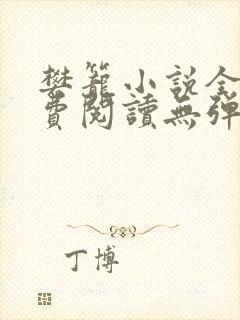 樊籠小說全
費閱讀無彈
丁博